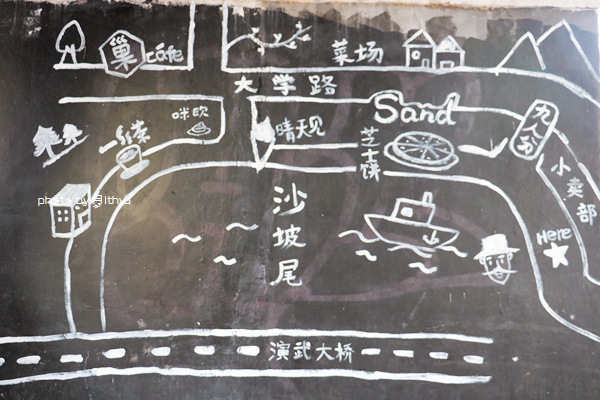 巢 cafe
菜场
大学路
咪哎
Sand
九八分
晴天见
一线索
芝士饼
小卖部
沙坡尾
Here
演武大桥